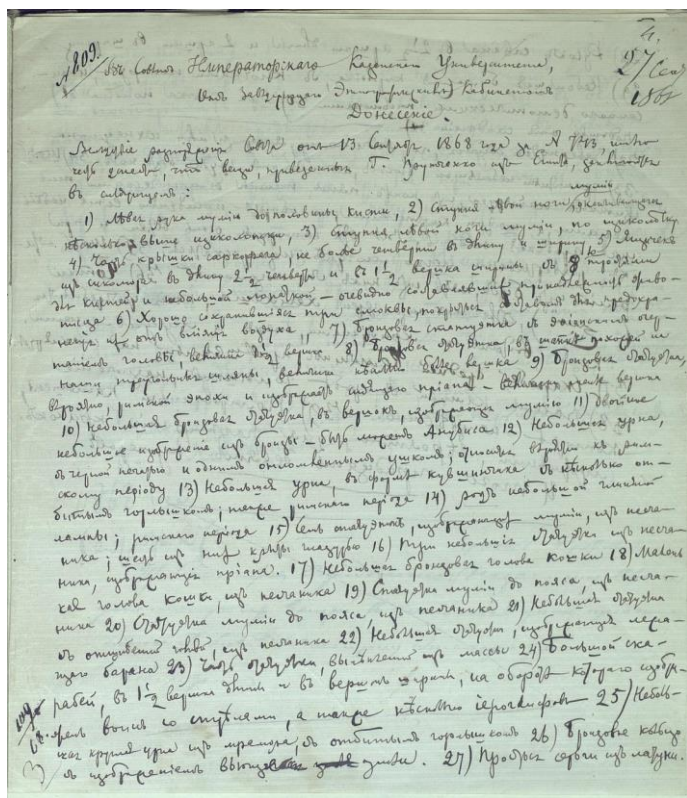 № 809.
27 Сент
186
Въ Совѣтъ Императорскаго Казанскаго Университета,
Завѣдующаго Этнографическимъ Кабинетомъ
Донесеніе.
Совѣта отъ 13 Сентября 1868 года за № 743, имѣю
честь донести, что вещи, привезенныя Г. изъ Египта, заключаются
въ слѣдующемъ:
1) Лѣвая рука муміи до половины кисти, 2) Ступня ногой муміи
нѣсколько выше щиколотки, 3) Ступня лѣвой ноги муміи, по щиколотку
4) Часть крышки саркофага, не болѣе четверти въ длину и ширину, 5) Ящичекъ
въ длину 2 1/2 четверти, и въ 1 1/2 вершка ширины съ
и небольшой — очевидно составлявшій принадлежность
6) Хорошо сохранившіяся три смоквы,
отъ воздуха, 7) Бронзовая статуэтка, съ
головы, вершка 8) Бронзовая статуэтка, въ шапкѣ
шляпы, величины вершка 9) Бронзовая статуэтка,
вѣроятно, римской эпохи и изображаетъ сидящаго пріапа — вершка
10) Небольшая бронзовая статуэтка, въ вершокъ, изображающая мумію 11)
небольшое изображеніе изъ бронзы — быть можетъ Анубиса 12) Небольшая урна,
съ черной и однимъ отломленнымъ ушкомъ; относится вѣроятно къ рим-
скому періоду 13) Небольшая урна, въ формѣ кувшинчика съ нѣсколько от-
битымъ горлышкомъ; также римскаго періода 14) родъ небольшой глиняной
лампы; римскаго періода 15) Семь статуэтокъ, изображающихъ муміи, изъ песча-
ника; шесть изъ нихъ крыты глазурью 16) Три небольшія статуэтки изъ песча-
ника, изображающія пріапа. 17) Небольшая бронзовая голова кошки 18) Малень-
кая голова кошки, изъ песчаника 19) Статуэтка муміи до пояса, изъ песча-
ника 20) Статуэтка муміи до пояса, изъ песчаника 21) Небольшая статуэтка
съ отшибенной головой, изъ песчаника 22) Небольшая статуэтка, изображающая лежа-
щаго барана 23) Часть статуэтки изъ массы 24) Большой ска-
рабей, въ 1 1/2 вершка длины и въ вершокъ ширины; на оборотѣ котораго изобра-
женъ воинъ со стрѣлами, а также нѣсколько іероглифовъ 25) Неболь-
шая круглая урна изъ мрамора, съ отбитымъ горлышкомъ 26) Бронзовое кольцо
съ изображеніемъ змѣи. 27) Простыя серьги изъ латуни.